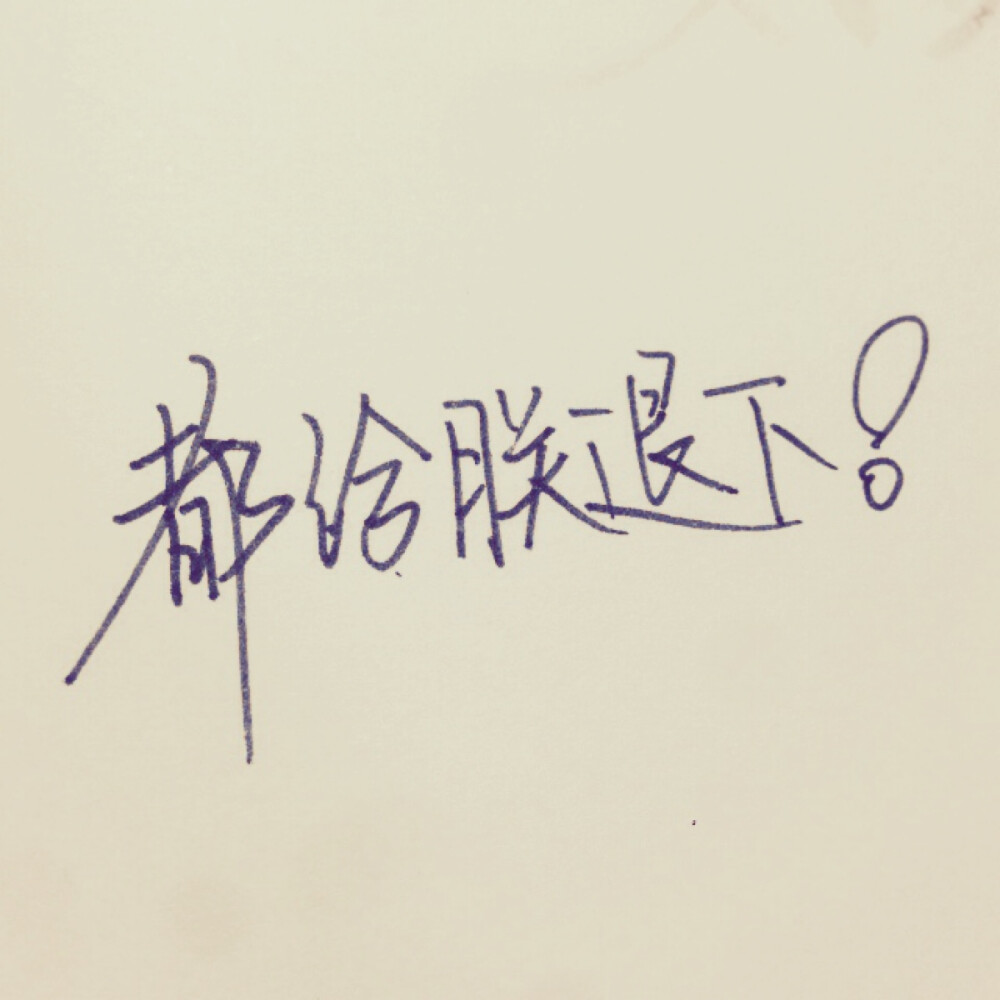 都给朕退下!